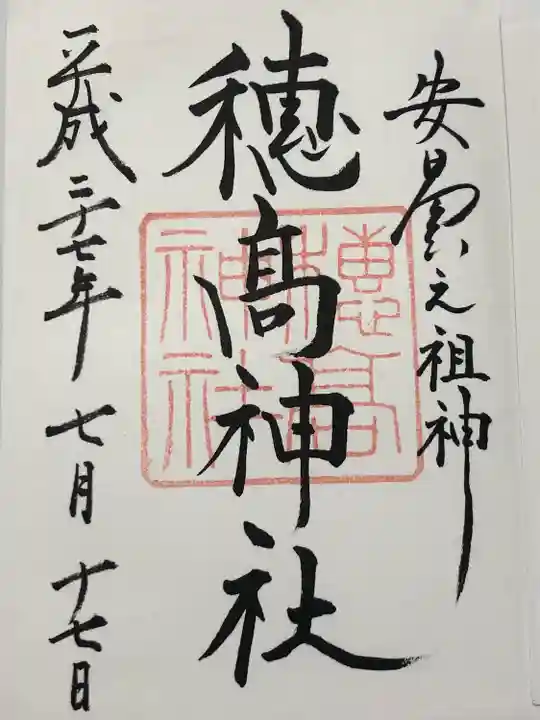 安曇之祖神
穂高神社
穂高神社
平成二十七年七月十七日